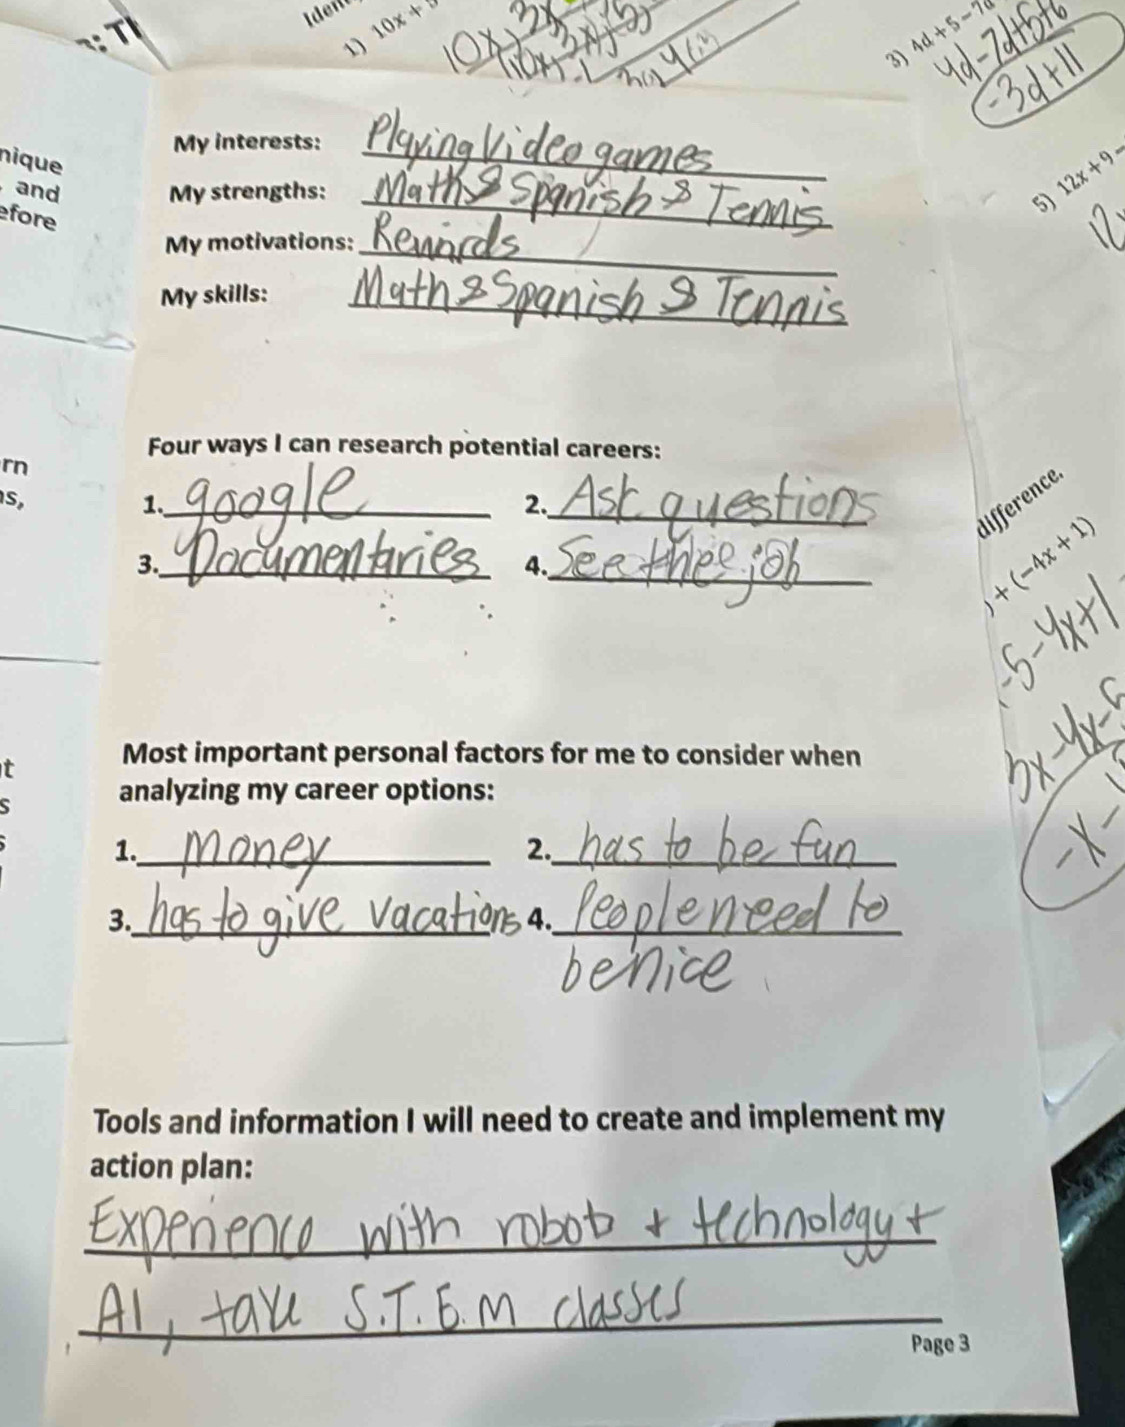 Iden
1) 10x +
3) 4d + 5 - 7d
4d-7d+5+6
-3d+11
nique
and
efore
My interests: Playing Video games
My strengths: Math & Spanish & Tennis
My motivations: Rewards
My skills: Math & Spanish & Tennis
5) 12x + 9 -
12
rn
s,
Four ways I can research potential careers:
1. google 2. Ask questions
3. Documentaries 4. See thee job
difference.
) + (-4x + 1)
-5-4x+1
t
s
Most important personal factors for me to consider when
analyzing my career options:
1. money 2. has to be fun
3. has to give vacations 4. People need to
be nice
-x-
Tools and information I will need to create and implement my
action plan:
Experience with robots + technology +
AI, take S.T.E.M classes
Page 3